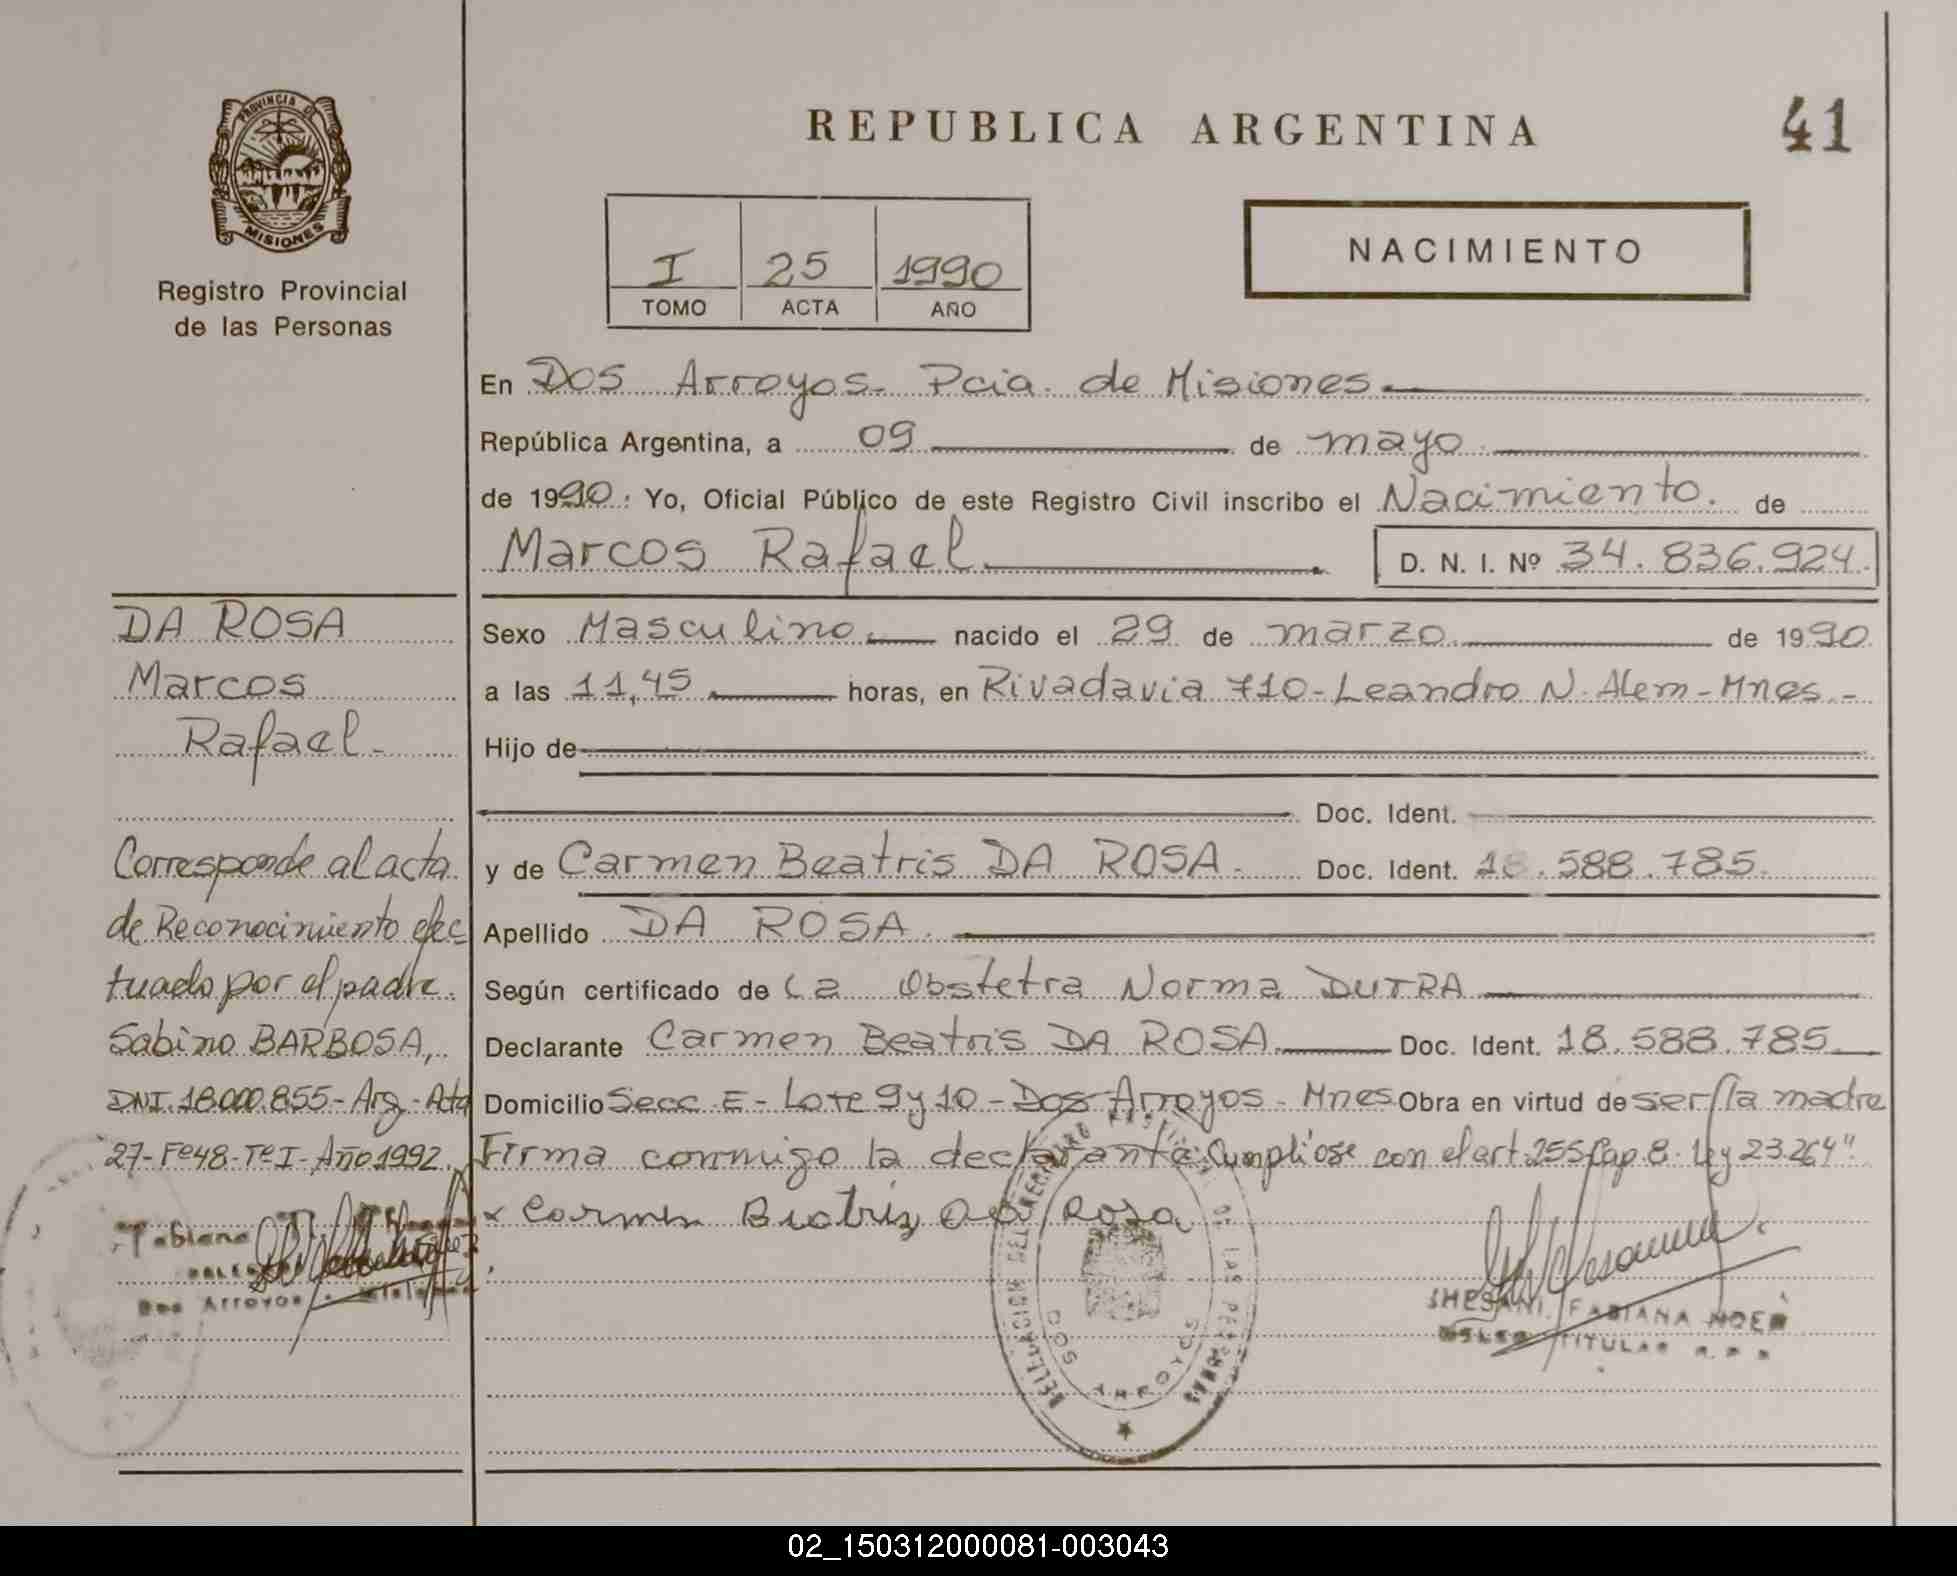 PROVINCIA DE
MISIONES
Registro Provincial
de las Personas
REPUBLICA ARGENTINA
41
I 25 1990
TOMO ACTA AÑO
NACIMIENTO
En Dos Arroyos - Pcia. de Misiones
República Argentina, a 09 de mayo
de 1990 : Yo, Oficial Público de este Registro Civil inscribo el Nacimiento. de
Marcos Rafael
D. N. I. Nº 34.836.924.
Sexo Masculino nacido el 29 de marzo de 1990
a las 11,45 horas, en Rivadavia 710 - Leandro N. Alem - Mnes. -
Hijo de
Doc. Ident.
y de Carmen Beatris DA ROSA - Doc. Ident. 18.588.785.
Apellido DA ROSA.
Según certificado de La Obstetra Norma DUTRA
Declarante Carmen Beatris DA ROSA. Doc. Ident. 18.588.785.
Domicilio Secc E - Lote 9 y 10 - Dos Arroyos - Mnes. Obra en virtud de ser la madre
Firma conmigo la declarante. "Cumplióse con el art. 255 Cap. 8 - Ley 23.264"
x Carmen Beatriz Da Rosa
DA ROSA
Marcos
Rafael -
Corresponde al acta
de Reconocimiento efec
tuado por el padre.
Sabino BARBOSA,
DNI. 18.000.855 - Arg. - Acta
27 - Fº 48 - Tº I - Año 1992.
Fabiana
Dos Arroyos - Misiones
DELEGACION DEL REGISTRO PROVINCIAL DE LAS PERSONAS
DOS ARROYOS
FABIANA NOEMI
TITULAR R. P. P.
02_150312000081-003043